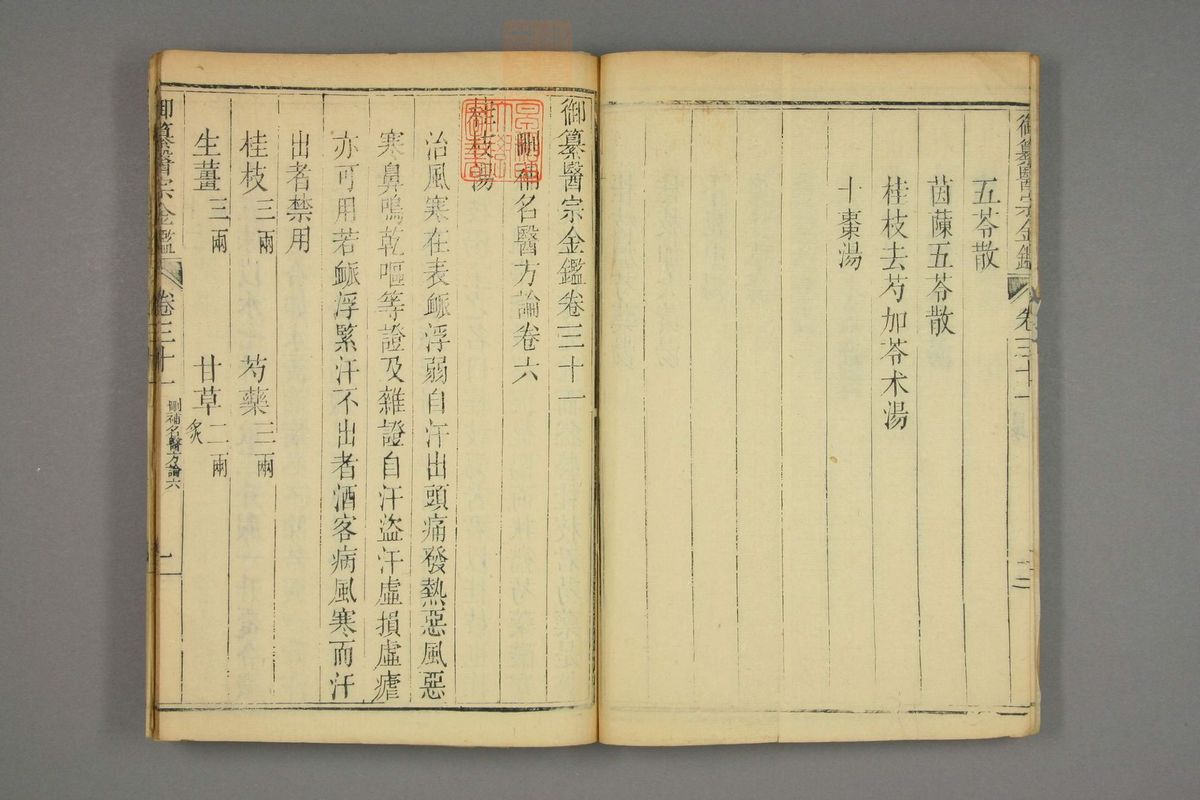 御纂醫宗金鑑
卷三十一
二
五苓散
茵蔯五苓散
桂枝去芍加苓术湯
十棗湯
御纂醫宗金鑑卷三十一
刪補名醫方論卷六
桂枝湯
治風寒在表脈浮弱自汗出頭痛發熱惡風惡
寒鼻鳴乾嘔等證及雜證自汗盜汗虛損虛瘧
亦可用若脈浮緊汗不出者酒客病風寒而汗
出者禁用
桂枝三兩 芍藥三兩
生薑三兩 甘草二兩炙
御纂醫宗金鑑 卷三十一 刪補名醫方論六 一